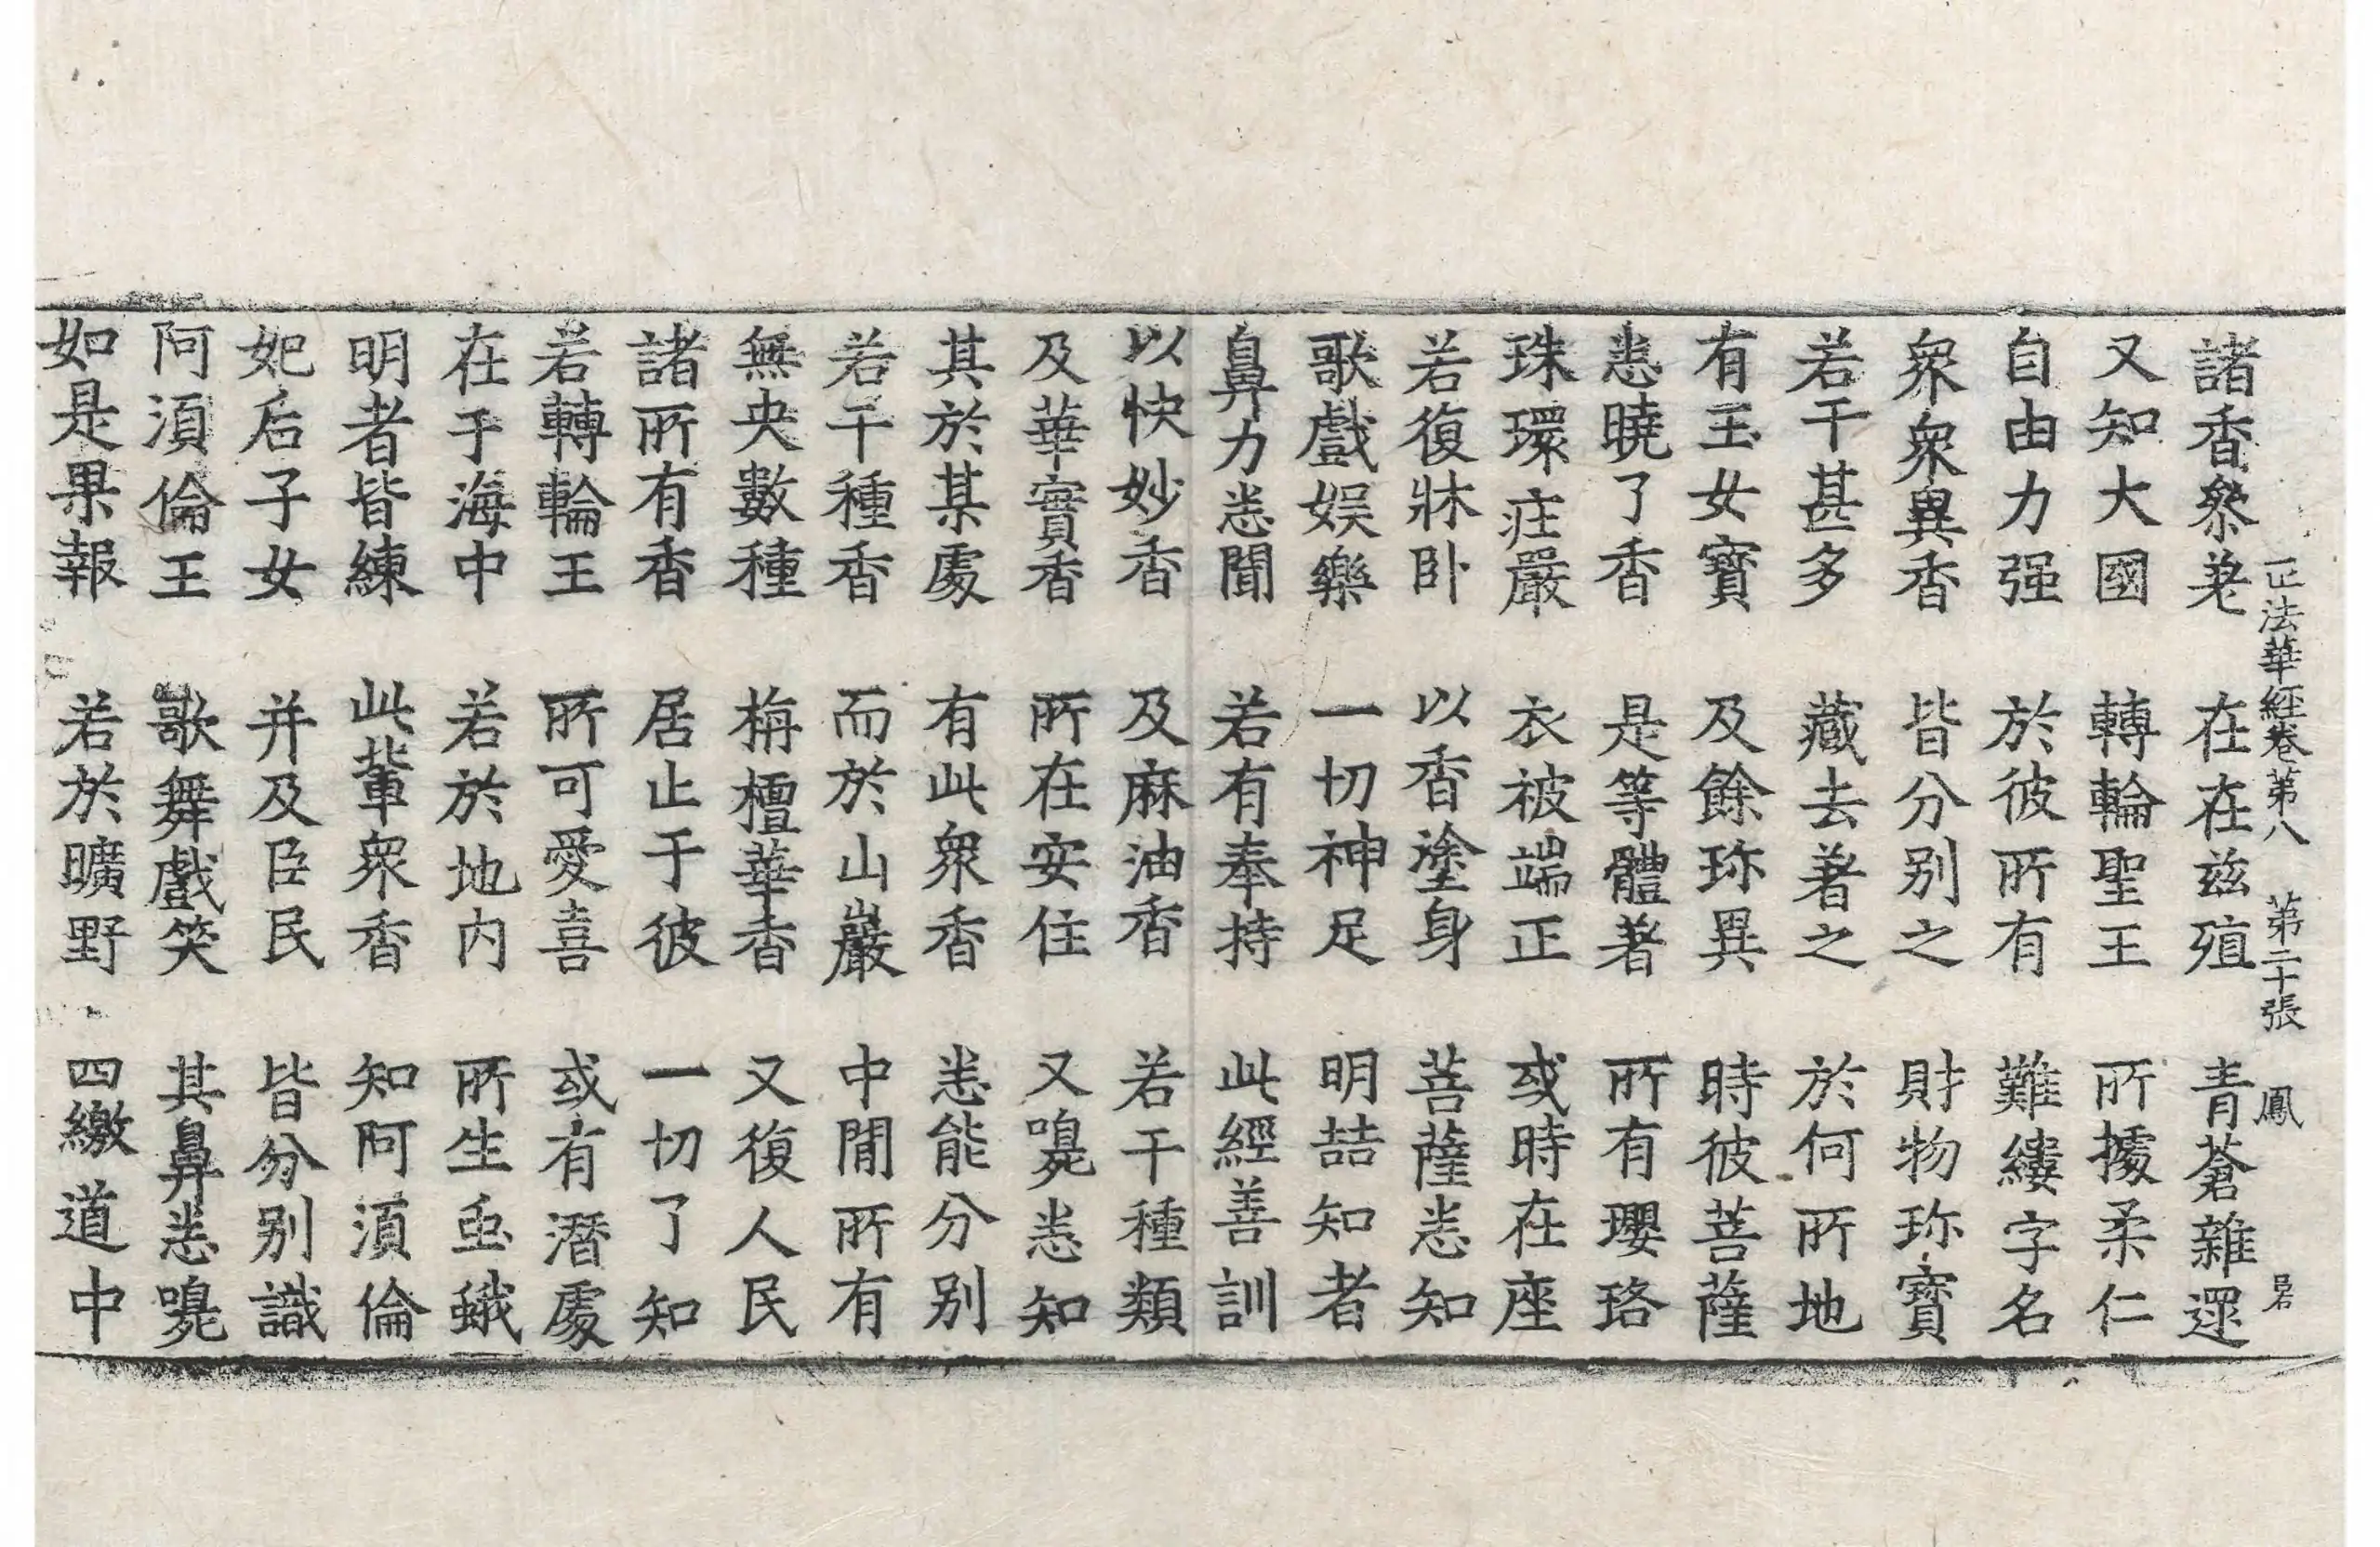 正法華經卷第八 第二十張 鳳 呂石
諸香叅差 在在茲殖 青蒼雜遝
又知大國 轉輪聖王 所據柔仁
自由力强 於彼所有 難縷字名
衆衆異香 皆分别之 財物珎寶
若干甚多 藏去著之 於何所地
有玉女寶 及餘珎異 時彼菩薩
悉曉了香 是等體著 所有瓔珞
珠環㽵嚴 衣被端正 或時在座
若復牀卧 以香塗身 菩薩悉知
歌戲娛樂 一切神足 明喆知者
鼻力悉聞 若有奉持 此經善訓
以快妙香 及麻油香 若干種類
及華實香 所在安住 又嗅悉知
其於某處 有此衆香 悉能分别
若干種香 而於山巖 中閒所有
無央數種 栴檀華香 又復人民
諸所有香 居止于彼 一切了知
若轉輪王 所可愛喜 或有潛處
在于海中 若於地内 所生䖝蛾
明者皆練 此輩衆香 知阿湏倫
妃后子女 并及臣民 皆分别識
阿湏倫王 歌舞戲笑 其鼻悉嗅
如是果報 若於曠野 四徼道中